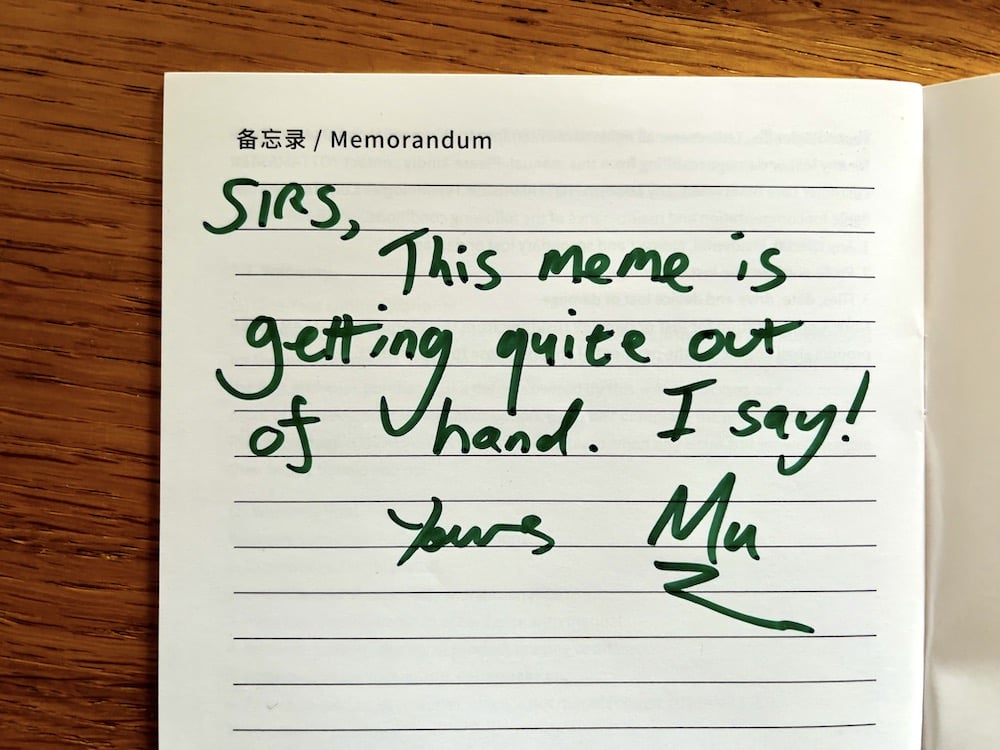 备忘录 / Memorandum
SIRS,
This meme is
getting quite out
of hand. I say!
Yours Mu